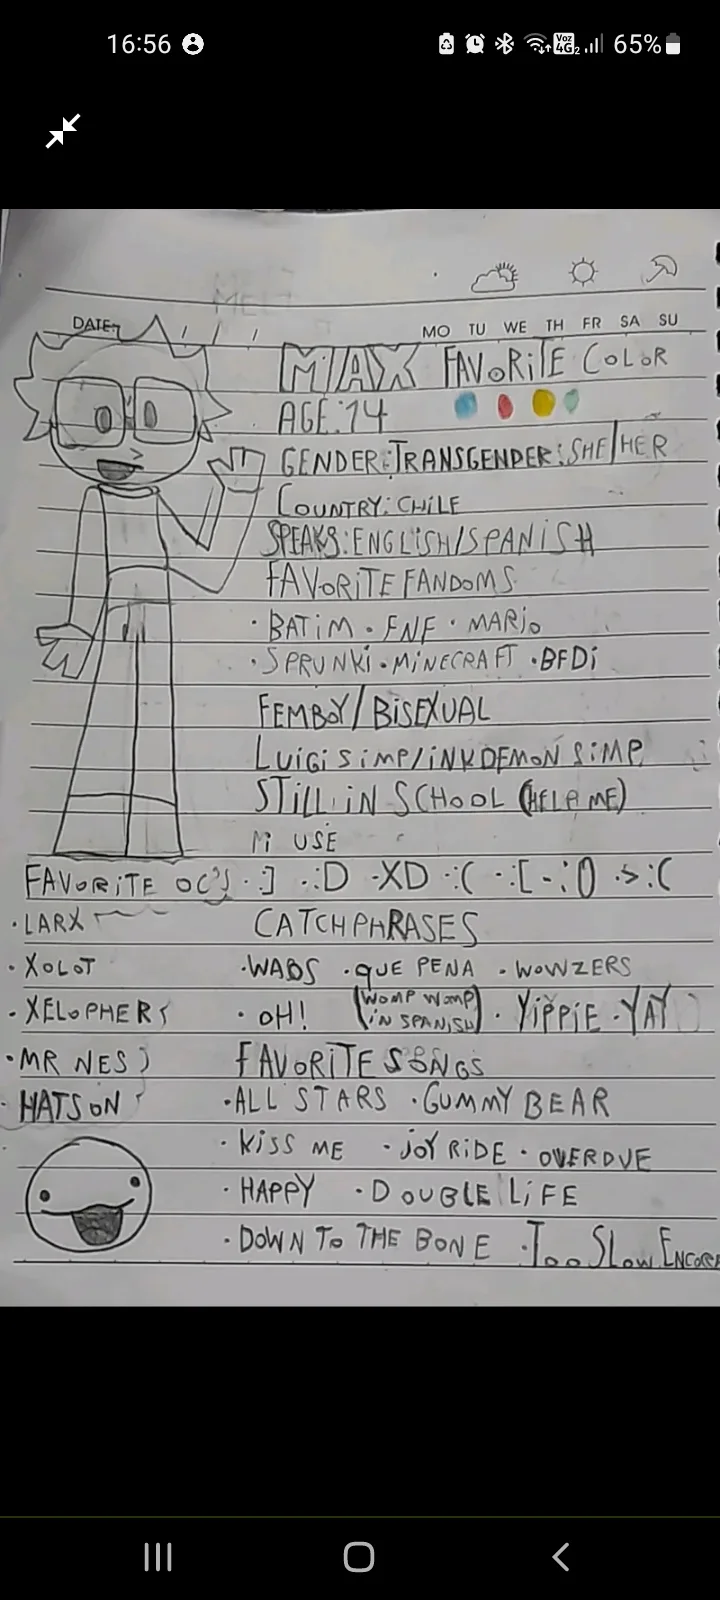 16:56
Voz
4G 2
65%
DATE: / / /
MO TU WE TH FR SA SU
MAX FAVORITE COLOR
AGE:14
GENDER:TRANSGENDER:SHE/HER
COUNTRY:CHILE
SPEAKS:ENGLISH/SPANISH
FAVORITE FANDOMS
·BATIM ·FNF ·MARIO
·SPRUNKI ·MINECRAFT ·BFDI
FEMBOY/BISEXUAL
LUIGI SIMP/INK DEMON SIMP
STILL IN SCHOOL (HELP ME)
USE
FAVORITE OC'S ·:] ·:D ·XD ·:( ·:[ -:() ·>:(
·LARX
·XOLOT
·XELOPHERS
·MR NES
·HATSON
CATCHPHRASES
·WABS ·QUE PENA ·WOWZERS
·OH! (WOMP WOMP IN SPANISH) ·YIPPIE ·YAY
FAVORITE SONGS
·ALL STARS ·GUMMY BEAR
·KISS ME ·JOY RIDE ·OVERDUE
·HAPPY ·DOUBLE LIFE
·DOWN TO THE BONE ·TOO SLOW ENCORE